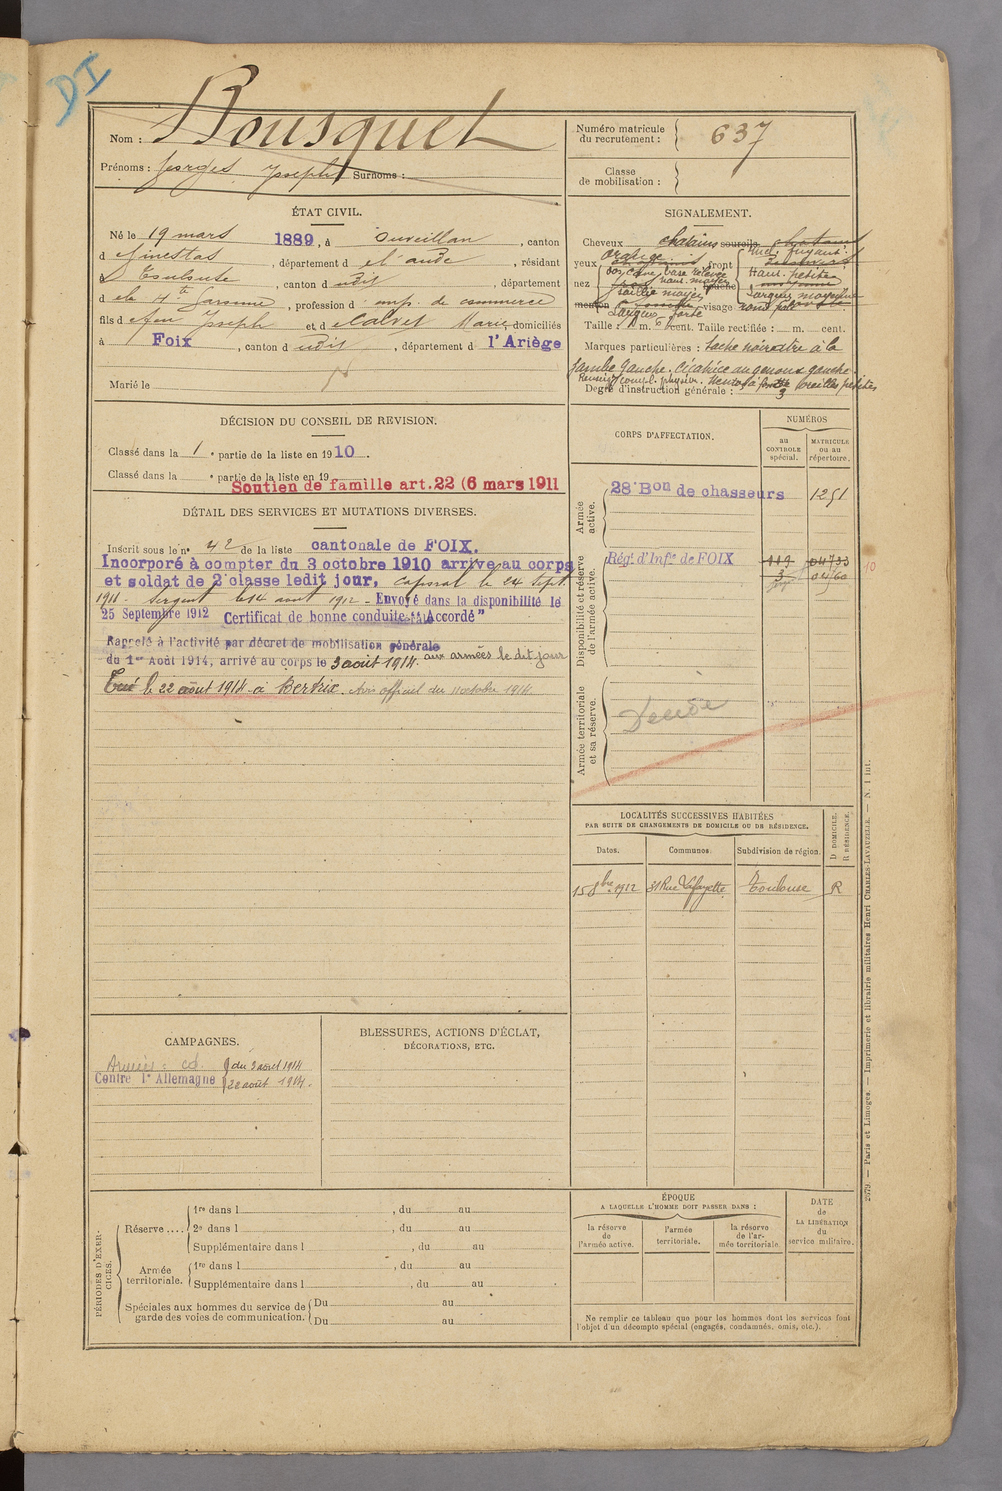 DI
Nom : Bousquet
Prénoms : Georges Joseph Surnoms :
Numéro matricule du recrutement : 637
Classe de mobilisation :
ÉTAT CIVIL.
Né le 19 mars 1889, à Ouveillan, canton
d Ginestas, département d el'aude, résidant
à Toulouse, canton d udit, département
d ela Hte Garonne, profession d emp. de commerce
fils d e feu Joseph et d e Calvet Marie, domiciliés
à Foix, canton d udit, département d l'Ariège
Marié le
SIGNALEMENT.
Cheveux chatains sourcils chatains
yeux orange front incl. fuyant
nez dos cave, base relevée haut. moyen saillie moyen Haut. petite Largeur moyenne
menton visage rond
Largeur forte
Taille : 1 m. 6 cent. Taille rectifiée : m. cent.
Marques particulières : tache noirâtre à la
jambe gauche. Cicatrice au genou gauche.
Renseig. compl. physio. Menton à Oreilles petites
Degré d'instruction générale : 3
DÉCISION DU CONSEIL DE REVISION.
Classé dans la 1e partie de la liste en 1910.
Classé dans la e partie de la liste en 19
Soutien de famille art.22 (6 mars 1911
DÉTAIL DES SERVICES ET MUTATIONS DIVERSES.
Inscrit sous le n° 42 de la liste cantonale de FOIX.
Incorporé à compter du 3 octobre 1910 arrivé au corps
et soldat de 2e classe ledit jour, caporal le 24 sept.
1911 - Sergent le 14 aout 1912 - Envoyé dans la disponibilité le
25 Septembre 1912 Certificat de bonne conduite "Accordé"
Rappelé à l'activité par décret de mobilisation générale
du 1er Août 1914, arrivé au corps le 3 août 1914. aux armées le dit jour
Tué le 22 août 1914 à Bertrix. Avis officiel du 11 octobre 1914
CORPS D'AFFECTATION.
NUMÉROS
au CONTROLE spécial.
MATRICULE ou au répertoire.
Armée active.
28e Bon de chasseurs 1251
Disponibilité et réserve de l'armée active.
Régt d'Infie de FOIX 119 04733
3 0460
10
Armée territoriale et sa réserve.
Décédé
LOCALITÉS SUCCESSIVES HABITÉES
PAR SUITE DE CHANGEMENTS DE DOMICILE OU DE RÉSIDENCE.
D DOMICILE. R RÉSIDENCE.
Dates. Communes. Subdivision de région.
15 8bre 1912 31 Rue Lafayette Toulouse R
CAMPAGNES.
Contre l'Allemagne du 3 août 1914
22 août 1914.
BLESSURES, ACTIONS D'ÉCLAT,
DÉCORATIONS, ETC.
PÉRIODES D'EXERCICES.
Réserve ....
1re dans l , du au
2e dans l , du au
Supplémentaire dans l , du au
Armée territoriale.
1re dans l , du au
Supplémentaire dans l , du au
Spéciales aux hommes du service de garde des voies de communication.
Du au
Du au
ÉPOQUE
A LAQUELLE L'HOMME DOIT PASSER DANS :
la réserve de l'armée active.
l'armée territoriale.
la réserve de l'armée territoriale.
DATE de LA LIBÉRATION du service militaire.
Ne remplir ce tableau que pour les hommes dont les services font
l'objet d'un décompte spécial (engagés, condamnés, omis, etc.).
2879. — Paris et Limoges. — Imprimerie et librairie militaires Henri CHARLES-LAVAUZELLE. — N. 1 int.